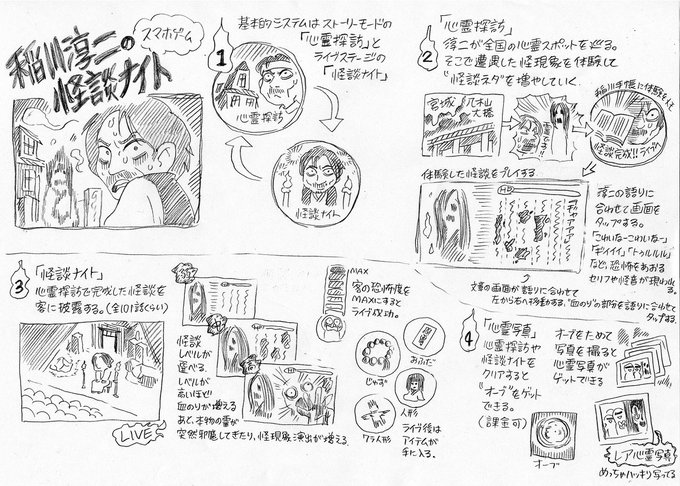 スマホゲーム
稲川淳二の
怪談ナイト
1
基本的システムはストーリーモードの
「心霊探訪」と
ライブステージの
「怪談ナイト」
心霊探訪
怪談ナイト
2
「心霊探訪」
淳二が全国の心霊スポットを巡る。
そこで遭遇した怪現象を体験して
"怪談ネタ"を増やしていく。
宮城
八木山
大橋
稲川手帳に体験をメモ
怪談完成!!
体験した怪談をプレイする
HP
ギャアアア
淳二の語りに
合わせて画面を
タップする。
「こわいなーこわいなー」
「ギィイイイ」「トゥルルルル」
など、恐怖をあおる
セリフや怪音が現われる。
文章の画面が語りに合わせて
左から右へ移動する。"血のり"の部分を語りに合せて
タップする
3
「怪談ナイト」
心霊探訪で完成した怪談を
客に披露する。(全101話くらい)
LIVE
怪談
レベルが
選べる。
レベルが
あがるほど
血のりが増える
あと、本物の霊が
突然邪魔してきたり、怪現象演出が増える
MAX
客の恐怖度を
MAXにすると
ライブ成功。
じゅず
おふだ
人形
ワラ人形
ライブ後は
アイテムが
手に入る。
4
「心霊写真」
心霊探訪や
怪談ナイトを
クリアすると
"オーブ"をゲット
できる。
(課金可)
オーブ
オーブをためて
写真を撮ると
心霊写真が
ゲットできる
レア心霊写真
めっちゃハッキリ写ってる